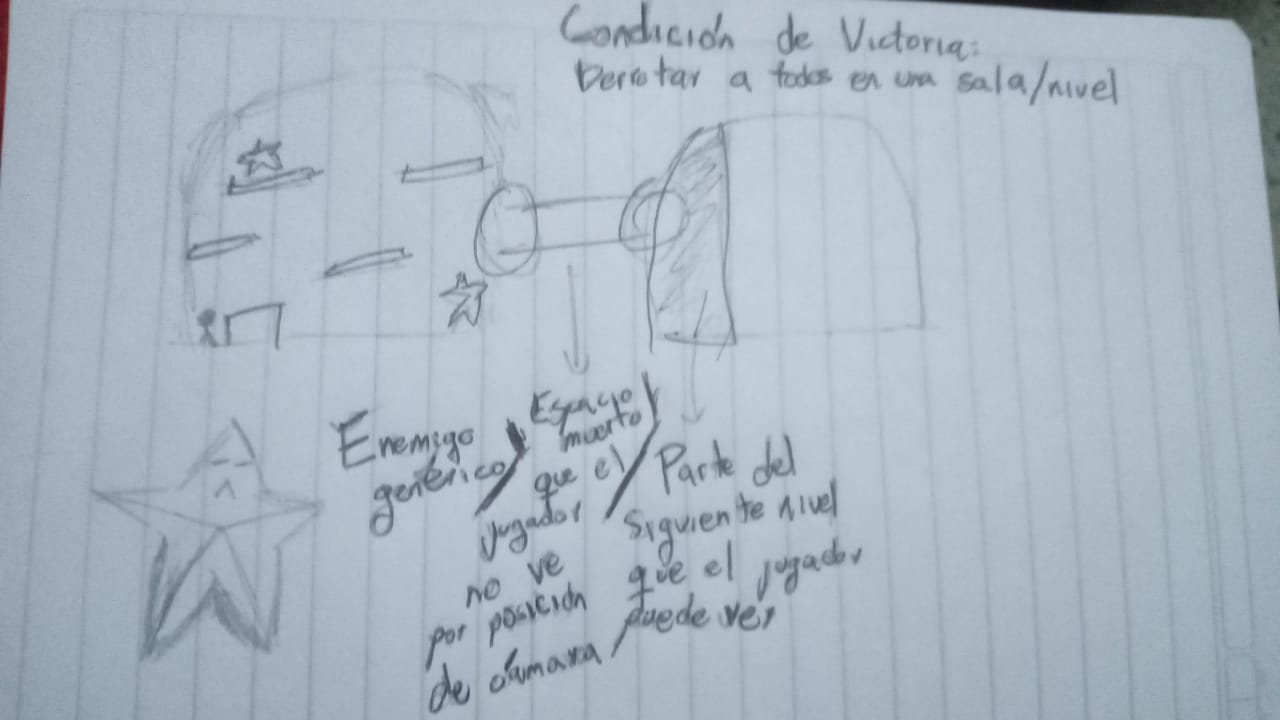 Condición de Victoria:
Derrotar a todos en una sala/nivel
Enemigo
genérico
Espacio
muerto
que el
jugador
no ve
por posición
de cámara
Parte del
siguiente nivel
que el jugador
puede ver